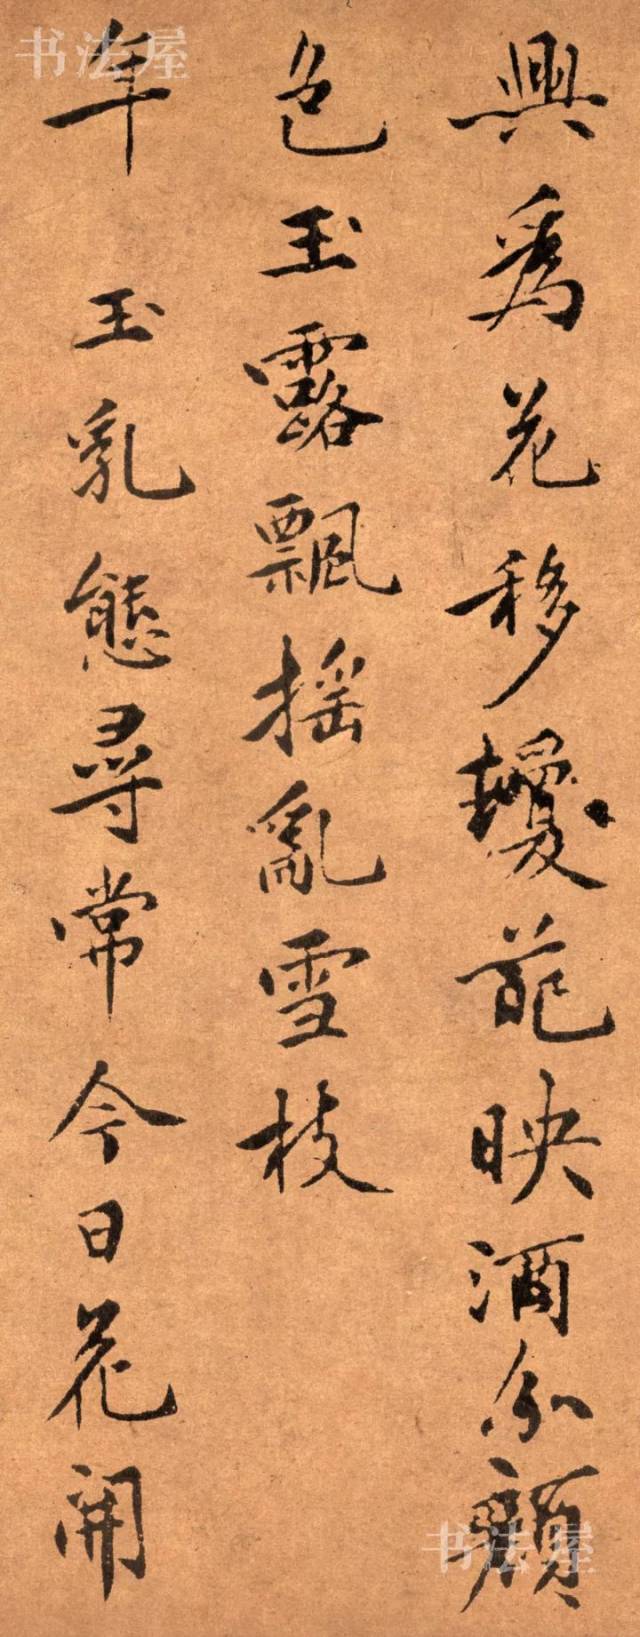 興為花移瓊葩映酒分顔
色玉露飄揺亂雪枝
年玉乳態尋常今日花開
书法屋
书法屋